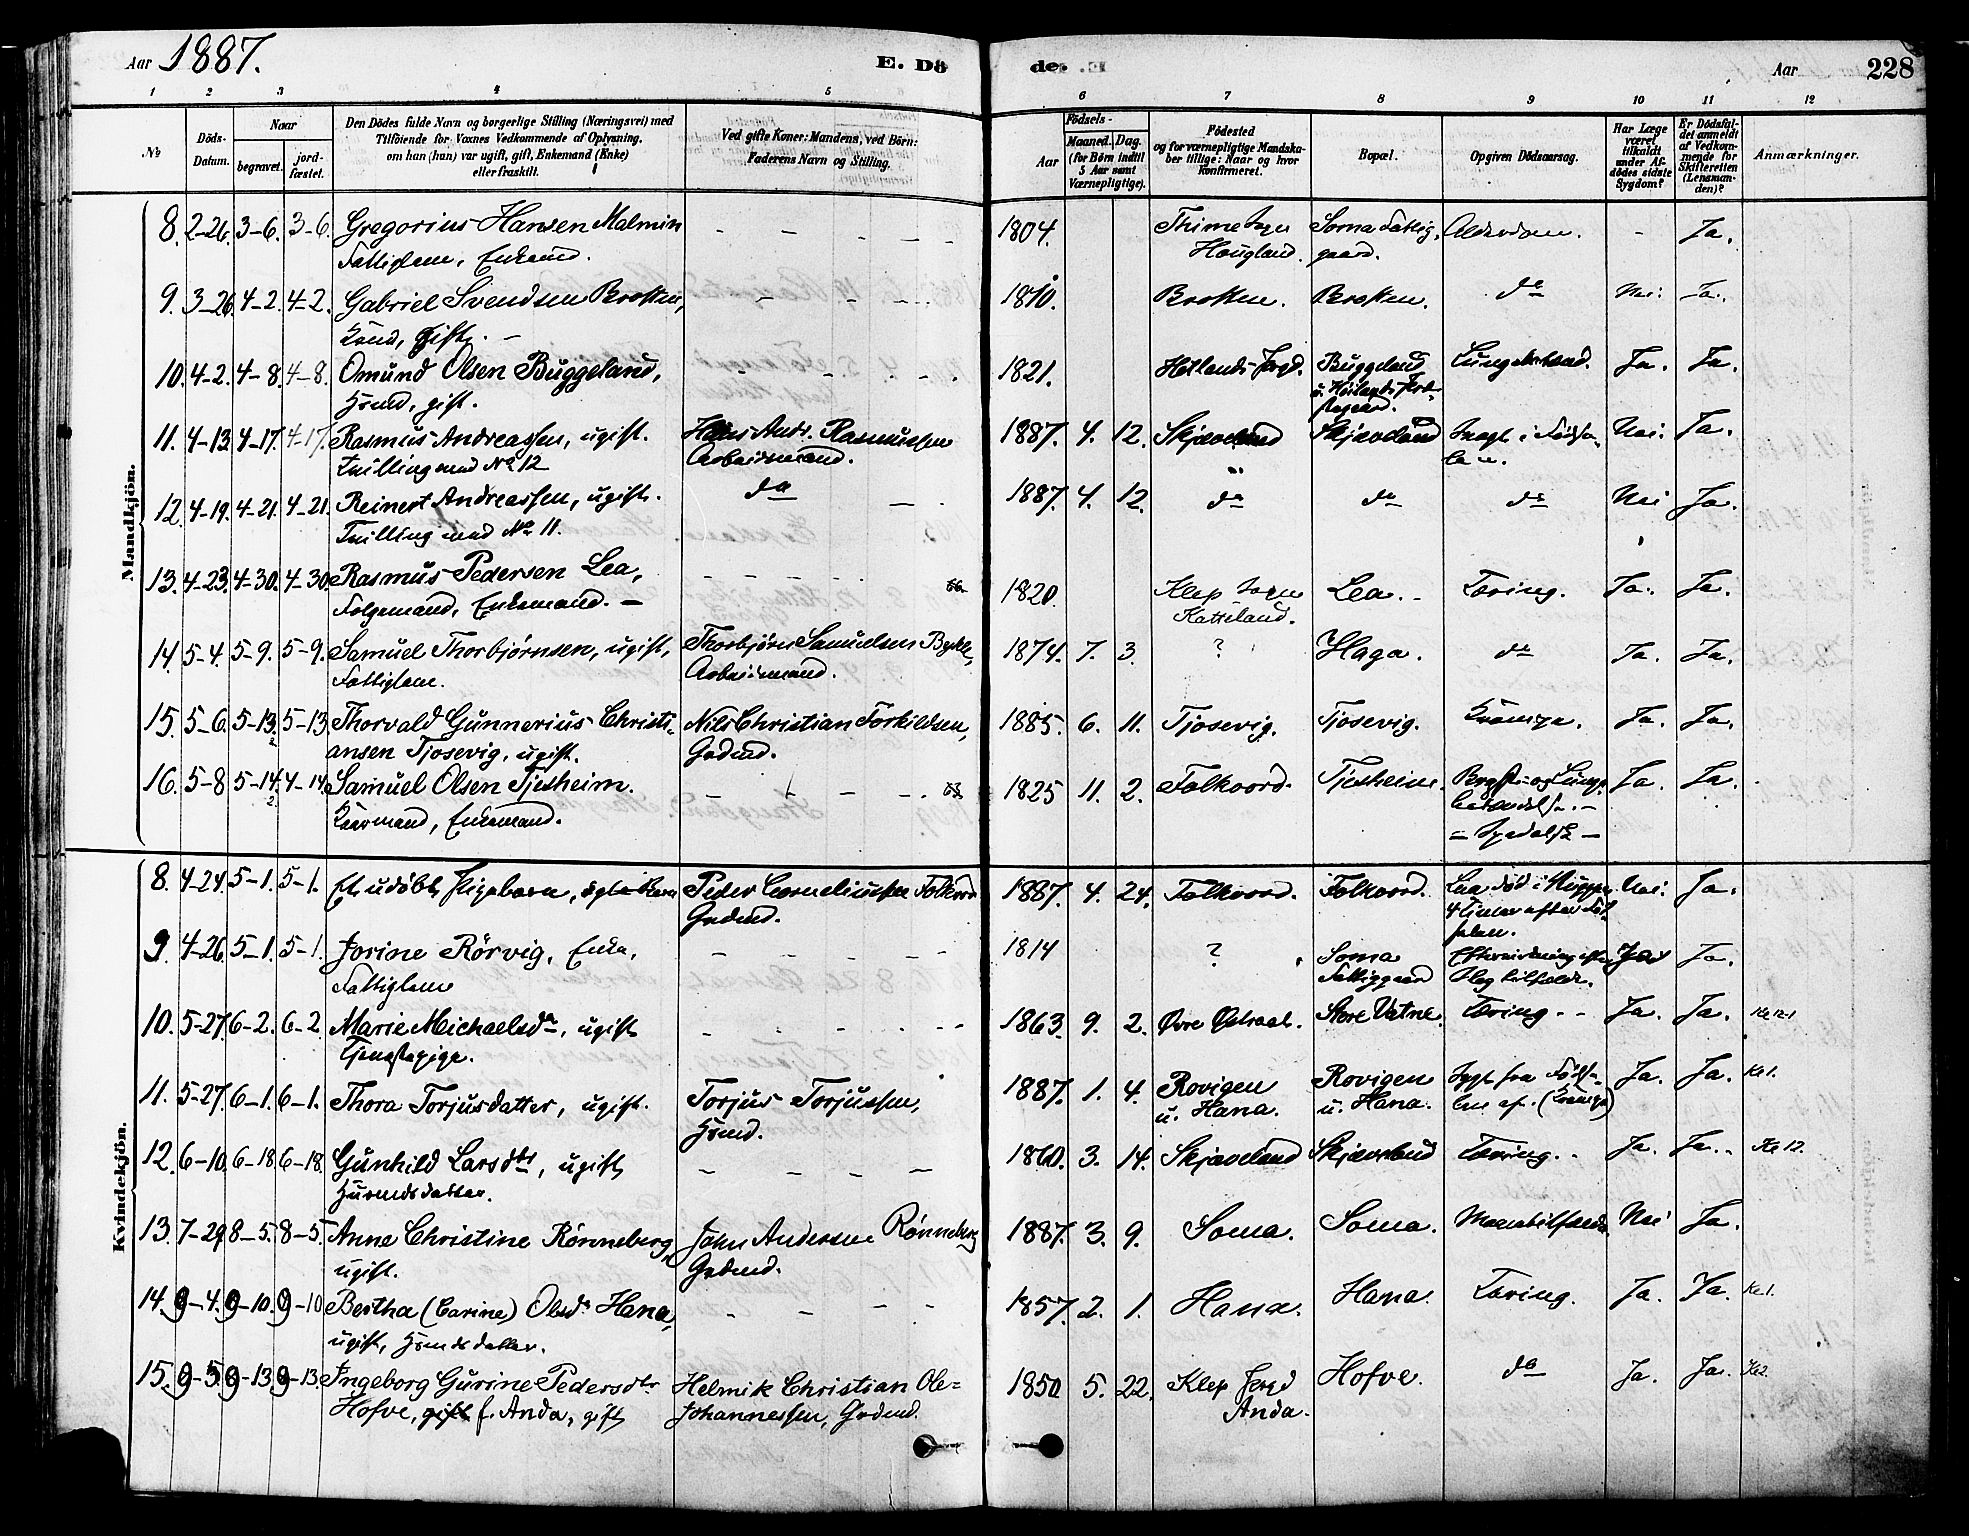 Aar 1887.
E. Dö
de.
Aar
228
1 2 3 4 5 6 7 8 9 10 11 12
№
Döds-Datum.
Naar
begravet.
jordfæstet.
Den Dödes fulde Navn og borgerlige Stilling (Næringsvei) med
Tilföiende for Voxnes Vedkommende af Oplysning,
om han (hun) var ugift, gift, Enkemand (Enke)
eller fraskilt.
Ved gifte Koner: Mandens, ved Börn:
Faderens Navn og Stilling.
Födsels-
Aar
Maaned. Dag.
(for Börn indtil
5 Aar samt
Værnepligtige).
Födested
og for værnepligtige Mandska-
ber tillige: Naar og hvor
konfirmeret.
Bopæl.
Opgiven Dödsaarsag.
Har Læge
været
tilkaldt
under Af-
dödes sidste
Sygdom?
Er Dödsfal-
det anmeldt
af Vedkom-
mende for
Skifteretten
(Lensman-
den)?
Anmærkninger.
Mandkjön.
8. 2-26. 3-6. 3-6. Gregorius Hansen Malmin 1804. Thime Sogn Soma Fattig- Alderdom. - Ja.
Fattiglem, Enkemd. Haugland. gaard.
9. 3-26. 4-2. 4-2. Gabriel Svendsen Brotten, 1810. Brotten. Brotten. do Nei. Ja.
gift.
10. 4-2. 4-8. 4-8. Omund Olsen Buggeland, 1821. Hetlands Prgd. Buggeland Ja. Ja.
gift.
11. 4-13. 4-17. 4-17. Rasmus Andreassen, ugift. Hans Andr. Rasmussen 1887. 4. 12. Skjæveland Skjæveland Svagt i Födse- Nei. Ja.
Tvilling med No 12 Arbeidsmand. len.
12. 4-19. 4-21. 4-21. Reinert Andreassen, ugift. do 1887. 4. 12. do do do Nei Ja.
Tvilling med No 11.
13. 4-23. 4-30. 4-30. Rasmus Pedersen Lea, 1820. Klep Sogn Lea. Tæring. Ja. Ja.
Folgemand, Enkemand. Katteland.
14. 5-4. 5-9. 5-9. Samuel Thorbjørnsen, ugift, Thorbjørn Samuelsen 1874. 7. 3. ? Haga. do Ja. Ja.
Fattiglem. Arbeidsmand.
15. 5-6. 5-13. 5-13. Thorvald Gunnerius Christi- Nils Christian Torkildsen, 1885. 6. 11. Tjosevig. Tjosevig. Krampe. Ja. Ja.
ansen Tjosevig, ugift. Gadmd.
16. 5-8 5-14. 4-14. Samuel Olsen Tjesheim. 1825 11. 2. Folkvord. Tjesheim. Bryst- og Lunge- Ja. Ja.
Kaarmand, Enkemand. betændelse.
= Spedalsk -
Kvindekjön.
8. 4-24. 5-1. 5-1. Et udöbt Pigebarn, ægte Barn Peder Corneliussen Folkvord 1887. 4. 24. Folkvord. Folkvord. Nei. Ja.
Gadmd. 4 Timer efter Föd-
selen.
9. 4-26. 5-1. 5-1. Jorine Rörvig, Enke, 1814 ? Soma Eftervirkning efter Ja Ja.
Fattiglem Fattiggaard Slagtilfælde.
10. 5-27. 6-2. 6-2. Marie Michaelsdr, ugift 1863. 9. 2. Øvre Østraat. Store Vatne. Tæring. Ja. Ja.
Tjenestepige.
11. 5-27. 6-1. 6-1. Thora Torjusdatter, ugift. Torjus Torjussen, 1887. 1. 4. Rovigen Rovigen Sygt fra Födse- Ja. Ja. Ke1.
Hsmd. u. Hana. u. Hana. len af. (Krampe)
12. 6-10. 6-18. 6-18. Gunhild Larsdtr, ugift, 1860. 3. 14. Skjæveland Skjæveland Tæring. Ja. Ja. Ke 12.
Husmdsdatter.
13. 7-29. 8-5. 8-5. Anne Christine Rønneberg, John Andersen Rønneberg 1887. 3. 9. Soma. Soma. Mavetilfælde. Nei Ja.
ugift. Gadmd.
14. 9-4. 9-10. 9-10 Bertha (Carine) Olsdr Hana, 1857. 2. 1. Hana. Hana. Tæring. Ja. Ja. Ke1.
ugift, Hsmdsdatter.
15. 9-5. 9-13. 9-13. Ingeborg Gurine Pedersdtr Helmik Christian Ole- 1850 5. 22. Klep Prgd Hofve. do Ja. Ja. Ke2
Hofve, gift f. Anda, gift Johannessen, Gadmd. Anda.